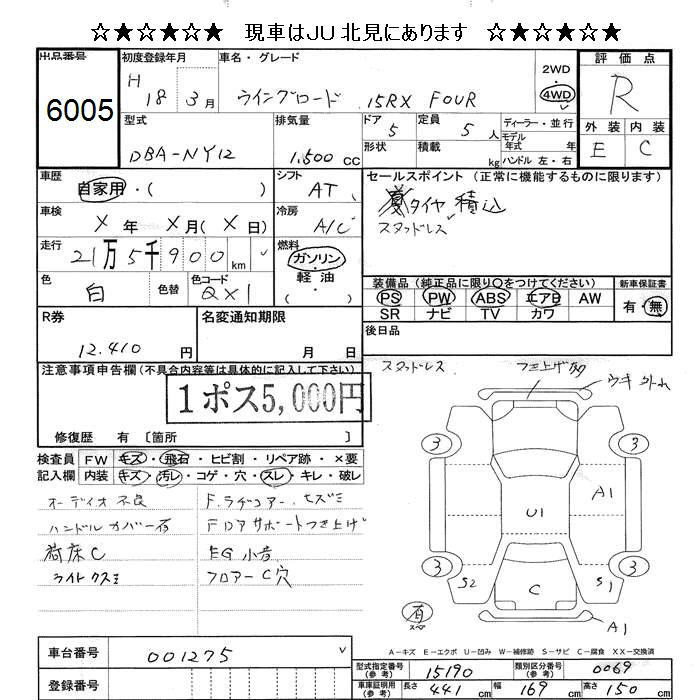 ☆★☆★☆★ 現車はJU北見にあります ☆★☆★☆★
出品番号
6005
初度登録年月
H 18 3月
車名・グレード
ウイングロード 15RX FOUR
2WD
・
4WD
評価点
R
外装 内装
E C
型式
DBA-NY12
排気量
1,500 cc
ドア 5
定員 5人
形状
積載 kg
ディーラー・並行
モデル年式 年式
ハンドル 左・右
車歴
自家用・( )
シフト
AT
車検
X年 X月(X日)
冷房
A/C
走行
21万5千900km
燃料
ガソリン
・
軽油
( )
色
白
色替
色コード
QX1
セールスポイント(正常に機能するものに限ります)
タイヤ積込
スタッドレス
装備品(純正品に限り○をつけてください)
PS PW ABS エアB AW
SR ナビ TV カワ
新車保証書
有・無
後日品
R券
12.410円
名変通知期限
月 日
注意事項申告欄(不具合内容等は具体的に記入して下さい)
1ポス5,000円
修復歴 有〔箇所 〕
検査員 FW キズ・飛石・ヒビ割・リペア跡・×要
記入欄 内装 キズ・汚レ・コゲ・穴・スレ・キレ・破レ
オーディオ不良
ハンドルカバー有
荷床C
ライトクスミ
F.ラヂコアー、ヒズミ
FロアサポートつきあげF
EG小音
フロアーC穴
スタッドレス
つき上げ
ウキ 外れ
3 3
A1
U1
3 3
S2 C S1
有
スペア
A1
A-キズ E-エクボ U-凹み W-補修跡 S-サビ C-腐食 XX-交換済
車台番号
001275
登録番号
型式指定番号(参考)
15190
類別区分番号(参考)
0069
車車証明用(参考)
長さ 441cm
幅 169cm
高さ 150cm